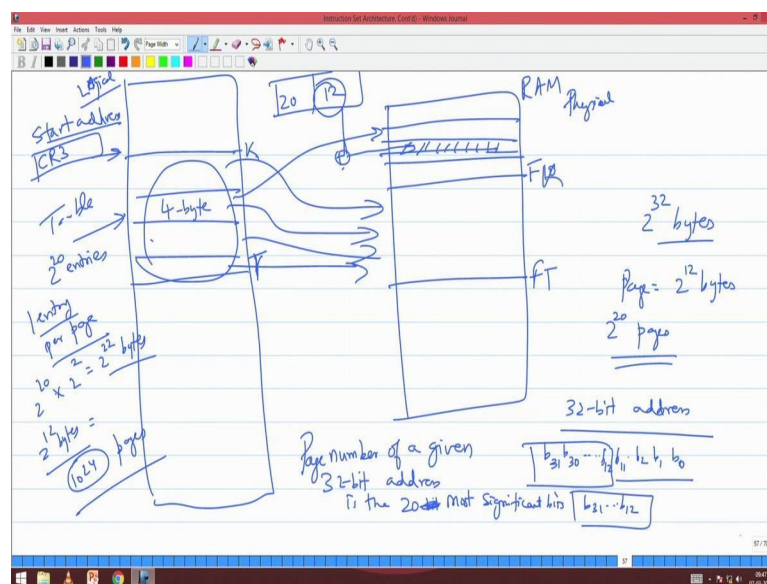 Instruction Set Architecture. Cont'd) - Windows Journal
File Edit View Insert Actions Tools Help
Page Width
B I
Logical
Start address
CR3
Table
2^20 entries
1 entry
per page
2^20 x 2^2 = 2^22 bytes
2^12 bytes =
1024 pages
4-byte
K
T
20 12
RAM
Physical
FK
FT
2^32 bytes
Page = 2^12 bytes
2^20 pages
32-bit address
b31 b30 ... b12 b11 .. b2 b1 b0
Page number of a given
32-bit address
is the 20 Most Significant bits b31 ... b12
57
57/7
09:47